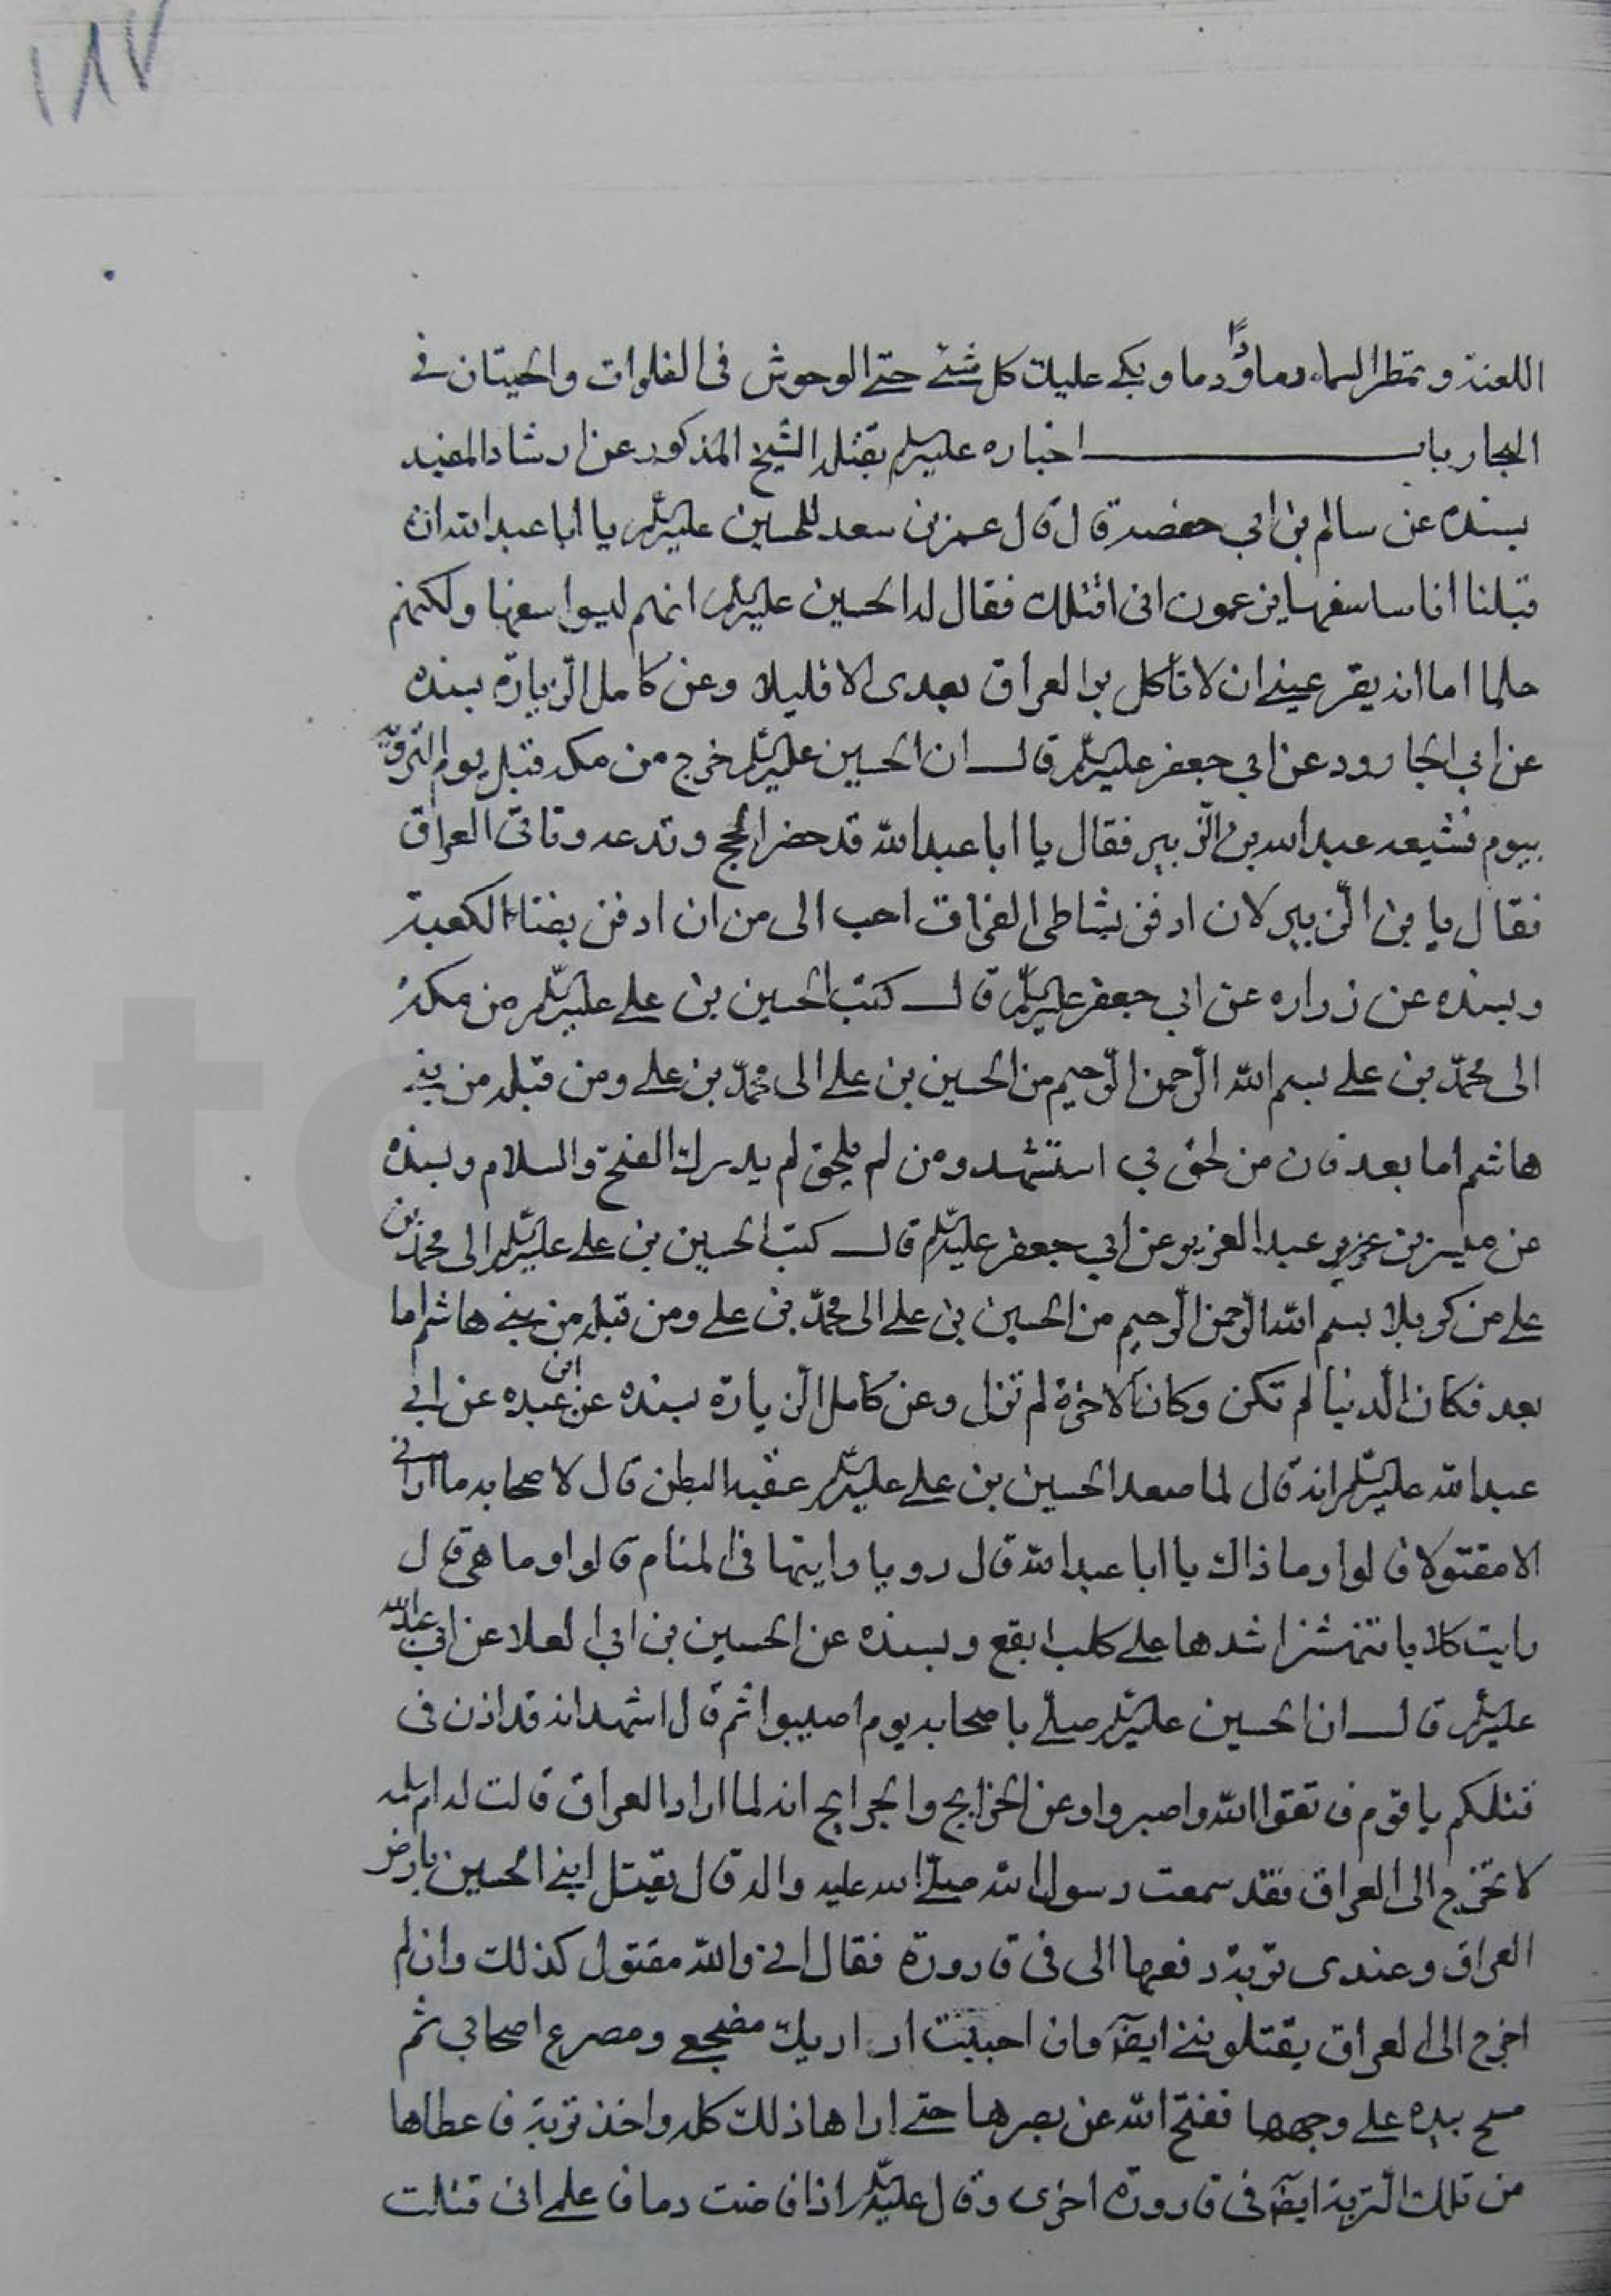 ١٨٧
اللعنة و تمطر السماء رمادًا و دما و يبكي عليك كل شئ حتى الوحوش فى الفلوات والحيتان فى
البحار باب اخباره عليه السلم بقتله الشيخ المذكور عن ارشاد المفيد
بسنده عن سالم بن ابي حفصه قال قال عمر بن سعد للحسين عليه السلم يا ابا عبد الله ان
قبلنا اناسا سفهاء يزعمون انى اقتلك فقال له الحسين عليه السلم انهم ليسوا سفها ولكنهم
حلما اما انه يقر عيني ان لا تأكل بر العراق بعدى الا قليلا وعن كامل الزيارة بسنده
عن ابي الجارود عن ابي جعفر عليه السلم قال ان الحسين عليه السلم خرج من مكه قبل يوم التروية
بيوم فشيعه عبد الله بن الزبير فقال يا ابا عبد الله قد حضر الحج و تدعه و تاتى العراق
فقال يا بن الزبير لان ادفن بشاطى الفرات احب الى من ان ادفن بفناء الكعبة
و بسنده عن زراره عن ابي جعفر عليه السلم قال كتب الحسين بن على عليه السلم من مكة
الى محمد بن على بسم الله الرحمن الرحيم من الحسين بن على الى محمد بن على ومن قبله من بنى
هاشم اما بعد فان من لحق بي استشهد ومن لم يلحق لم يدرك الفتح والسلام وبسنده
عن ميسر بن عبد العزيز عن ابي جعفر عليه السلم قال كتب الحسين بن على عليه السلم الى محمد بن
على من كربلا بسم الله الرحمن الرحيم من الحسين بن على الى محمد بن على ومن قبله من بني هاشم اما
بعد فكان الدنيا لم تكن وكان الاخرة لم تزل وعن كامل الزيارة بسنده عن ابن عبده عن ابي
عبد الله عليه السلم انه قال لما صعد الحسين بن على عليه السلم عقبه البطن قال لاصحابه ما اراني
الا مقتولا قالوا وما ذاك يا ابا عبد الله قال رويا رايتها فى المنام قالوا وما هى قال
رايت كلابا تنهشنى اشدها على كلب ابقع وبسنده عن الحسين بن ابي العلا عن ابي عبد الله
عليه السلم قال ان الحسين عليه السلم صلى باصحابه يوم اصيبوا ثم قال اشهد انه قد اذن فى
قتلكم يا قوم فاتقوا الله واصبروا وعن الخرايج والجرايح انه لما اراد العراق قالت له ام سلمه
لا تخرج الى العراق فقد سمعت رسول الله صلى الله عليه واله قال يقتل ابني الحسين بارض
العراق وعندى تربة دفعها الى فى قارورة فقال انى والله مقتول كذلك وان لم
اخرج الى العراق يقتلوننى ايضا وان احببت ان اريك مضجعى ومصرع اصحابي ثم
مسح بيده على وجهها ففتح الله عن بصرها حتى اراها ذلك كله واخذ تربة فاعطاها
من تلك التربة ايضا فى قارورة اخرى وقال عليه السلم اذا فاضت دما فاعلمى انى قتلت